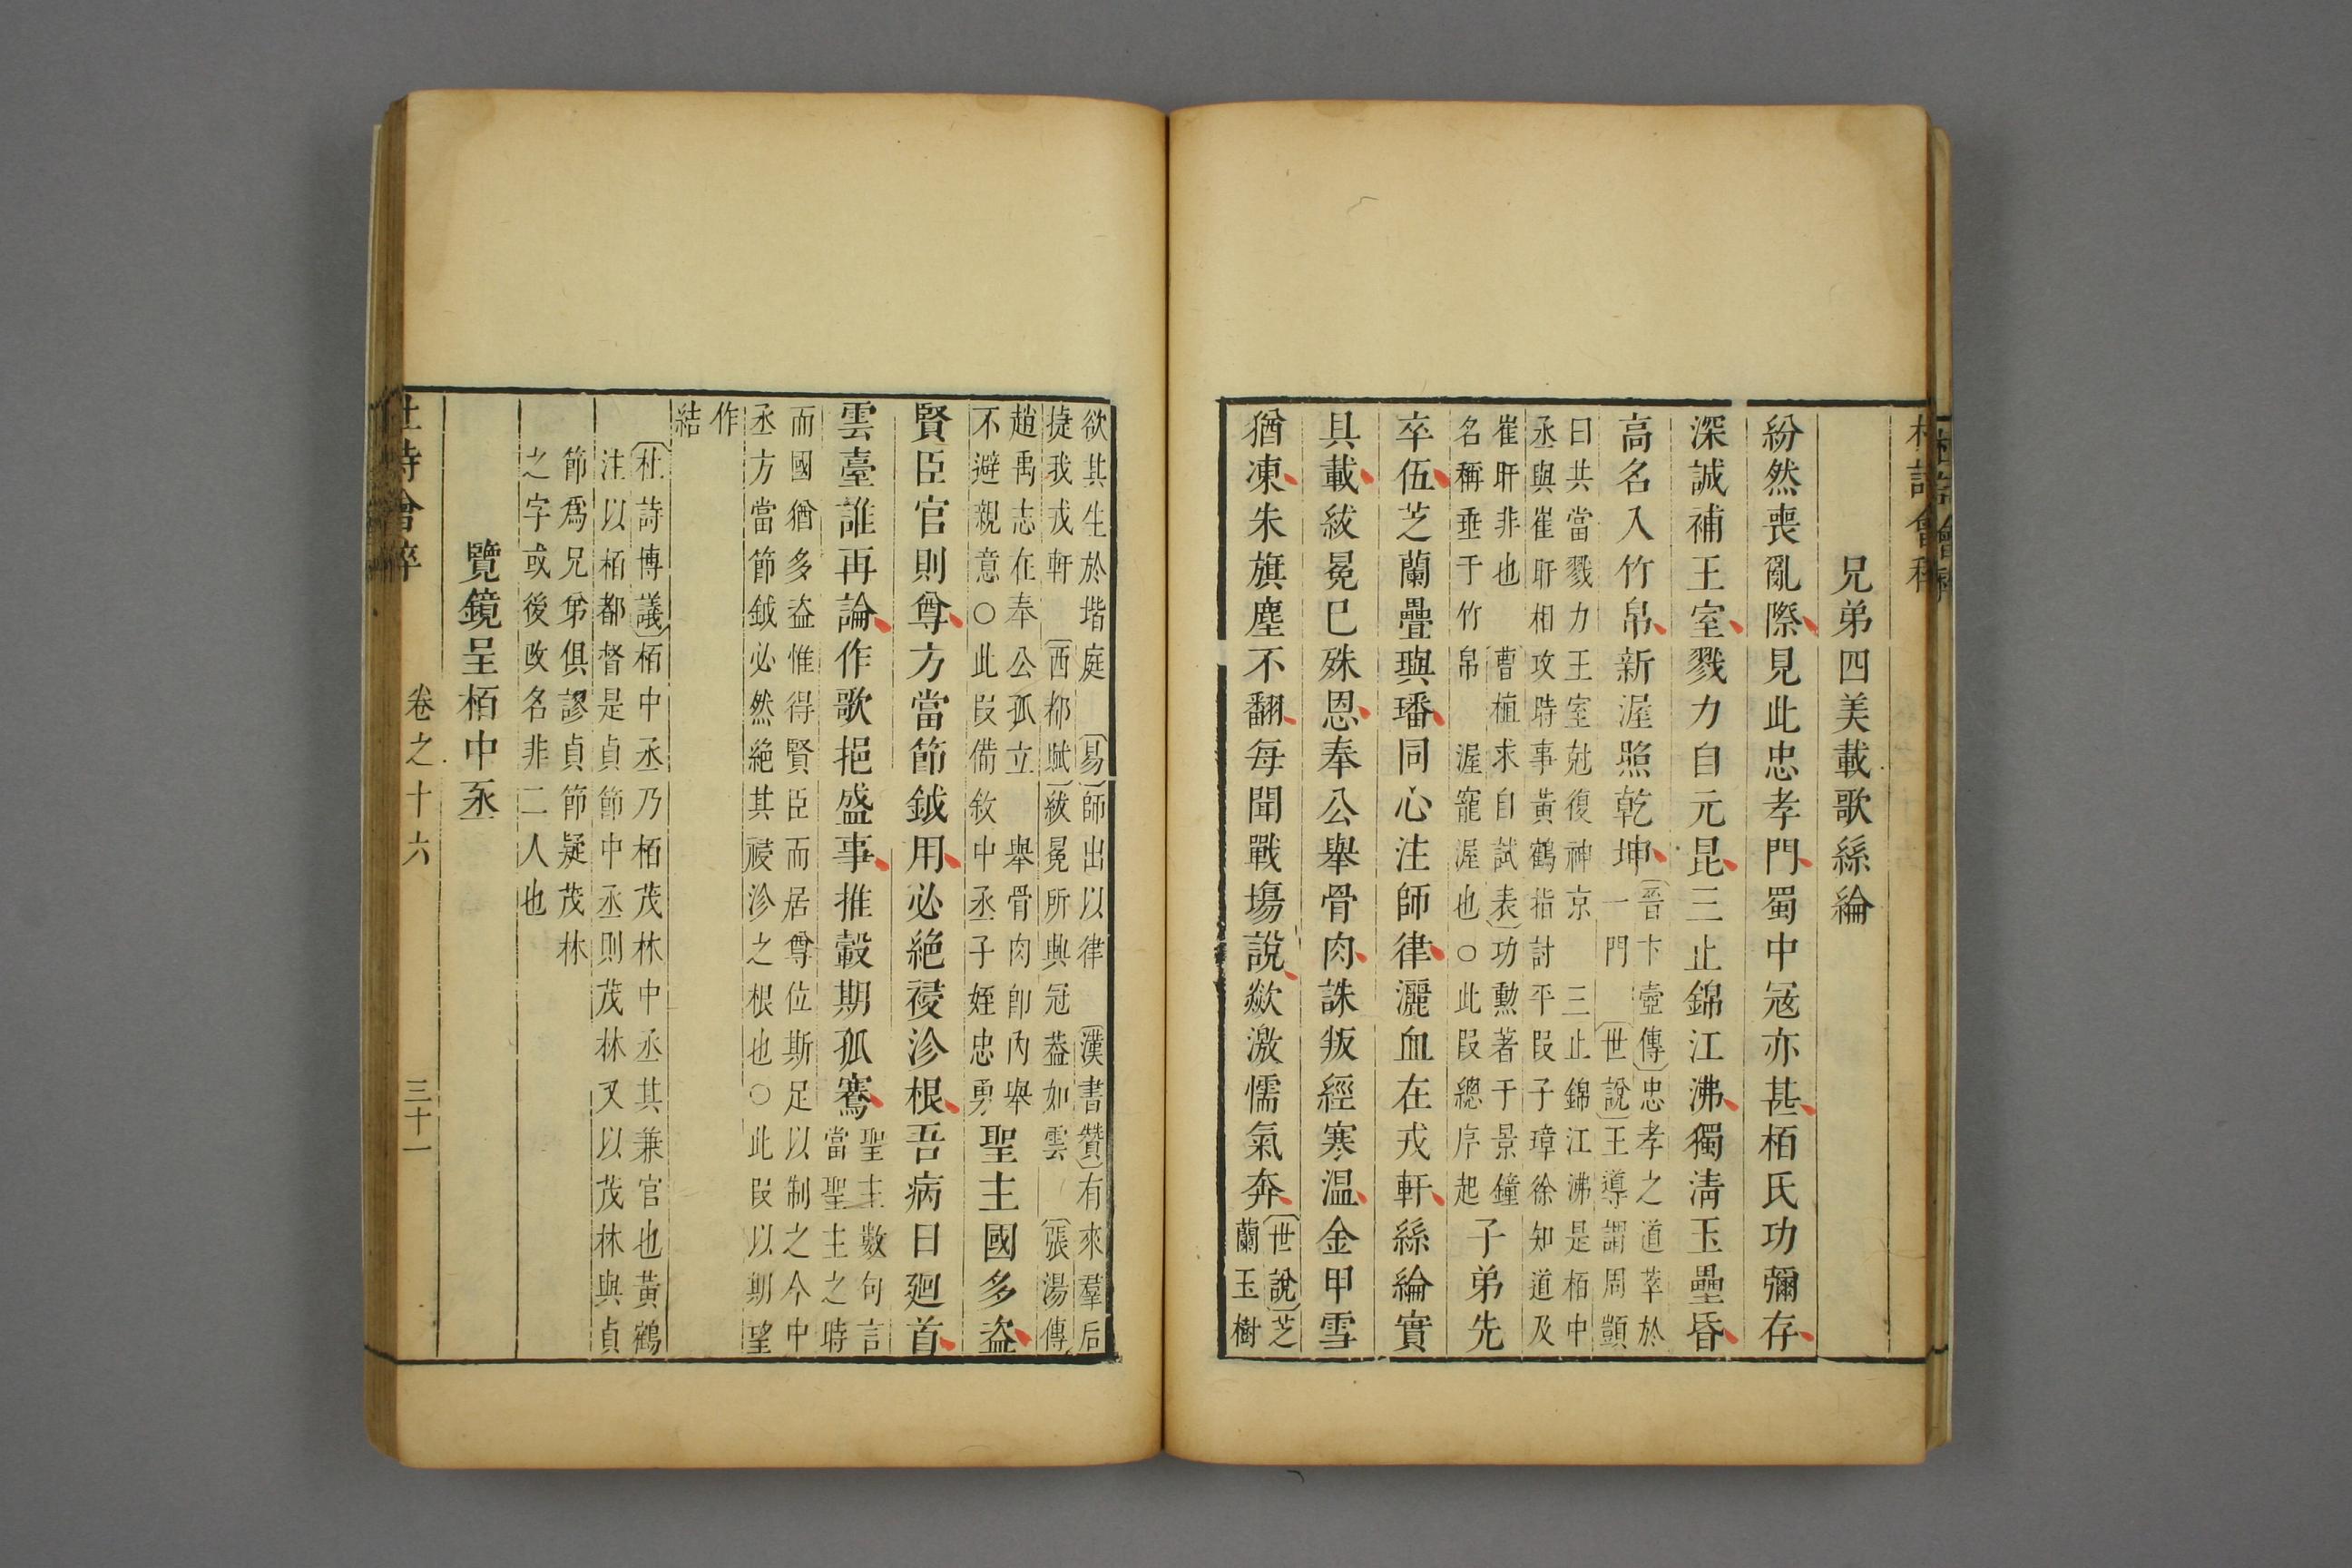 兄弟四美載歌絲綸
紛然喪亂際見此忠孝門蜀中冦亦甚栢氏功彌存
深誠補王室戮力自元昆三止錦江沸獨淸玉壘昏
高名入竹帛新渥照乾坤
〔晉卞壺傳〕忠孝之道萃於
一門〔世說〕王導謂周顗
曰共當戮力王室尅復神京 三止錦江沸是栢中
丞與崔旰相攻時事黃鶴指討平叚子璋徐知道及
崔旰非也〔曹植求自試表〕功勲著于景鐘
名稱垂于竹帛 渥寵渥也○此叚總序起
子弟先
卒伍芝蘭疊璵璠同心注師律灑血在戎軒絲綸實
具載紱冕巳殊恩奉公舉骨肉誅叛經寒温金甲雪
猶凍朱旗塵不翻每聞戰塲說歘激懦氣奔
〔世說〕芝
蘭玉樹
欲其生於堦庭〔易〕師出以律〔漢書贊〕有來羣后
捷我戎軒〔西都賦〕紱冕所興冠葢如雲〔張湯傳〕
趙禹志在奉公孤立 舉骨肉卽內舉
不避親意○此叚備敘中丞子姪忠勇
聖主國多盗
賢臣官則尊方當節鉞用必絕祲沴根吾病日廻首
雲臺誰再論作歌挹盛事推轂期孤騫
聖主數句言
當聖主之時
而國猶多盗惟得賢臣而居尊位斯足以制之今中
丞方當節鉞必然絕其祲沴之根也○此叚以期望
作
結
〔杜詩博議〕栢中丞乃栢茂林中丞其兼官也黃鶴
注以栢都督是貞節中丞則茂林又以茂林與貞
節爲兄弟俱謬貞節疑茂林
之字或後改名非二人也
覽鏡呈栢中丞
杜詩會稡
卷之十六
三十一